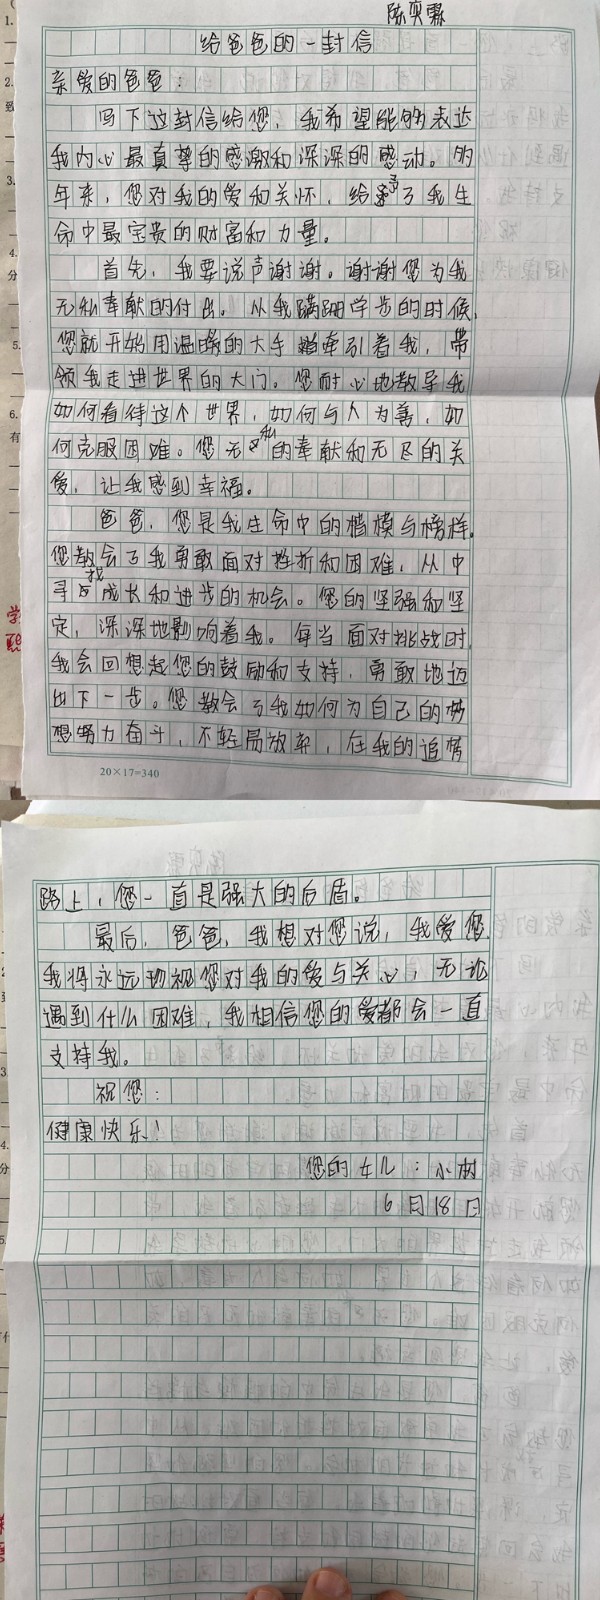 陈奕霖
给爸爸的一封信
亲爱的爸爸：
写下这封信给您，我希望能够表达
我内心最真挚的感激和深深的感动。多
年来，您对我的爱和关怀，给予了我生
命中最宝贵的财富和力量。
首先，我要说声谢谢。谢谢您为我
无私奉献的付出。从我蹒跚学步的时候，
您就开始用温暖的大手牵引着我，带
领我走进世界的大门。您耐心地教导我
如何看待这个世界，如何与人为善，如
何克服困难。您无私的奉献和无尽的关
爱，让我感到幸福。
爸爸，您是我生命中的楷模与榜样。
您教会了我勇敢面对挫折和困难，从中
寻找成长和进步的机会。您的坚强和坚
定，深深地影响着我。每当面对挑战时，
我会回想起您的鼓励和支持，勇敢地迈
出下一步。您教会了我如何为自己的梦
想努力奋斗，不轻易放弃，在我的追梦
20×17=340
路上，您一直是强大的后盾。
最后，爸爸，我想对您说，我爱您，
我将永远珍视您对我的爱与关心，无论
遇到什么困难，我相信您的爱都会一直
支持我。
祝您：
健康快乐！
您的女儿：小树
6月18日